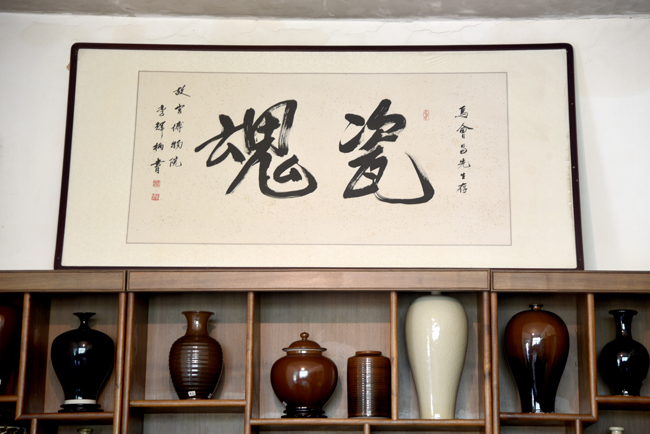 馬會昌先生存
瓷魂
故宮博物院
李輝柄書